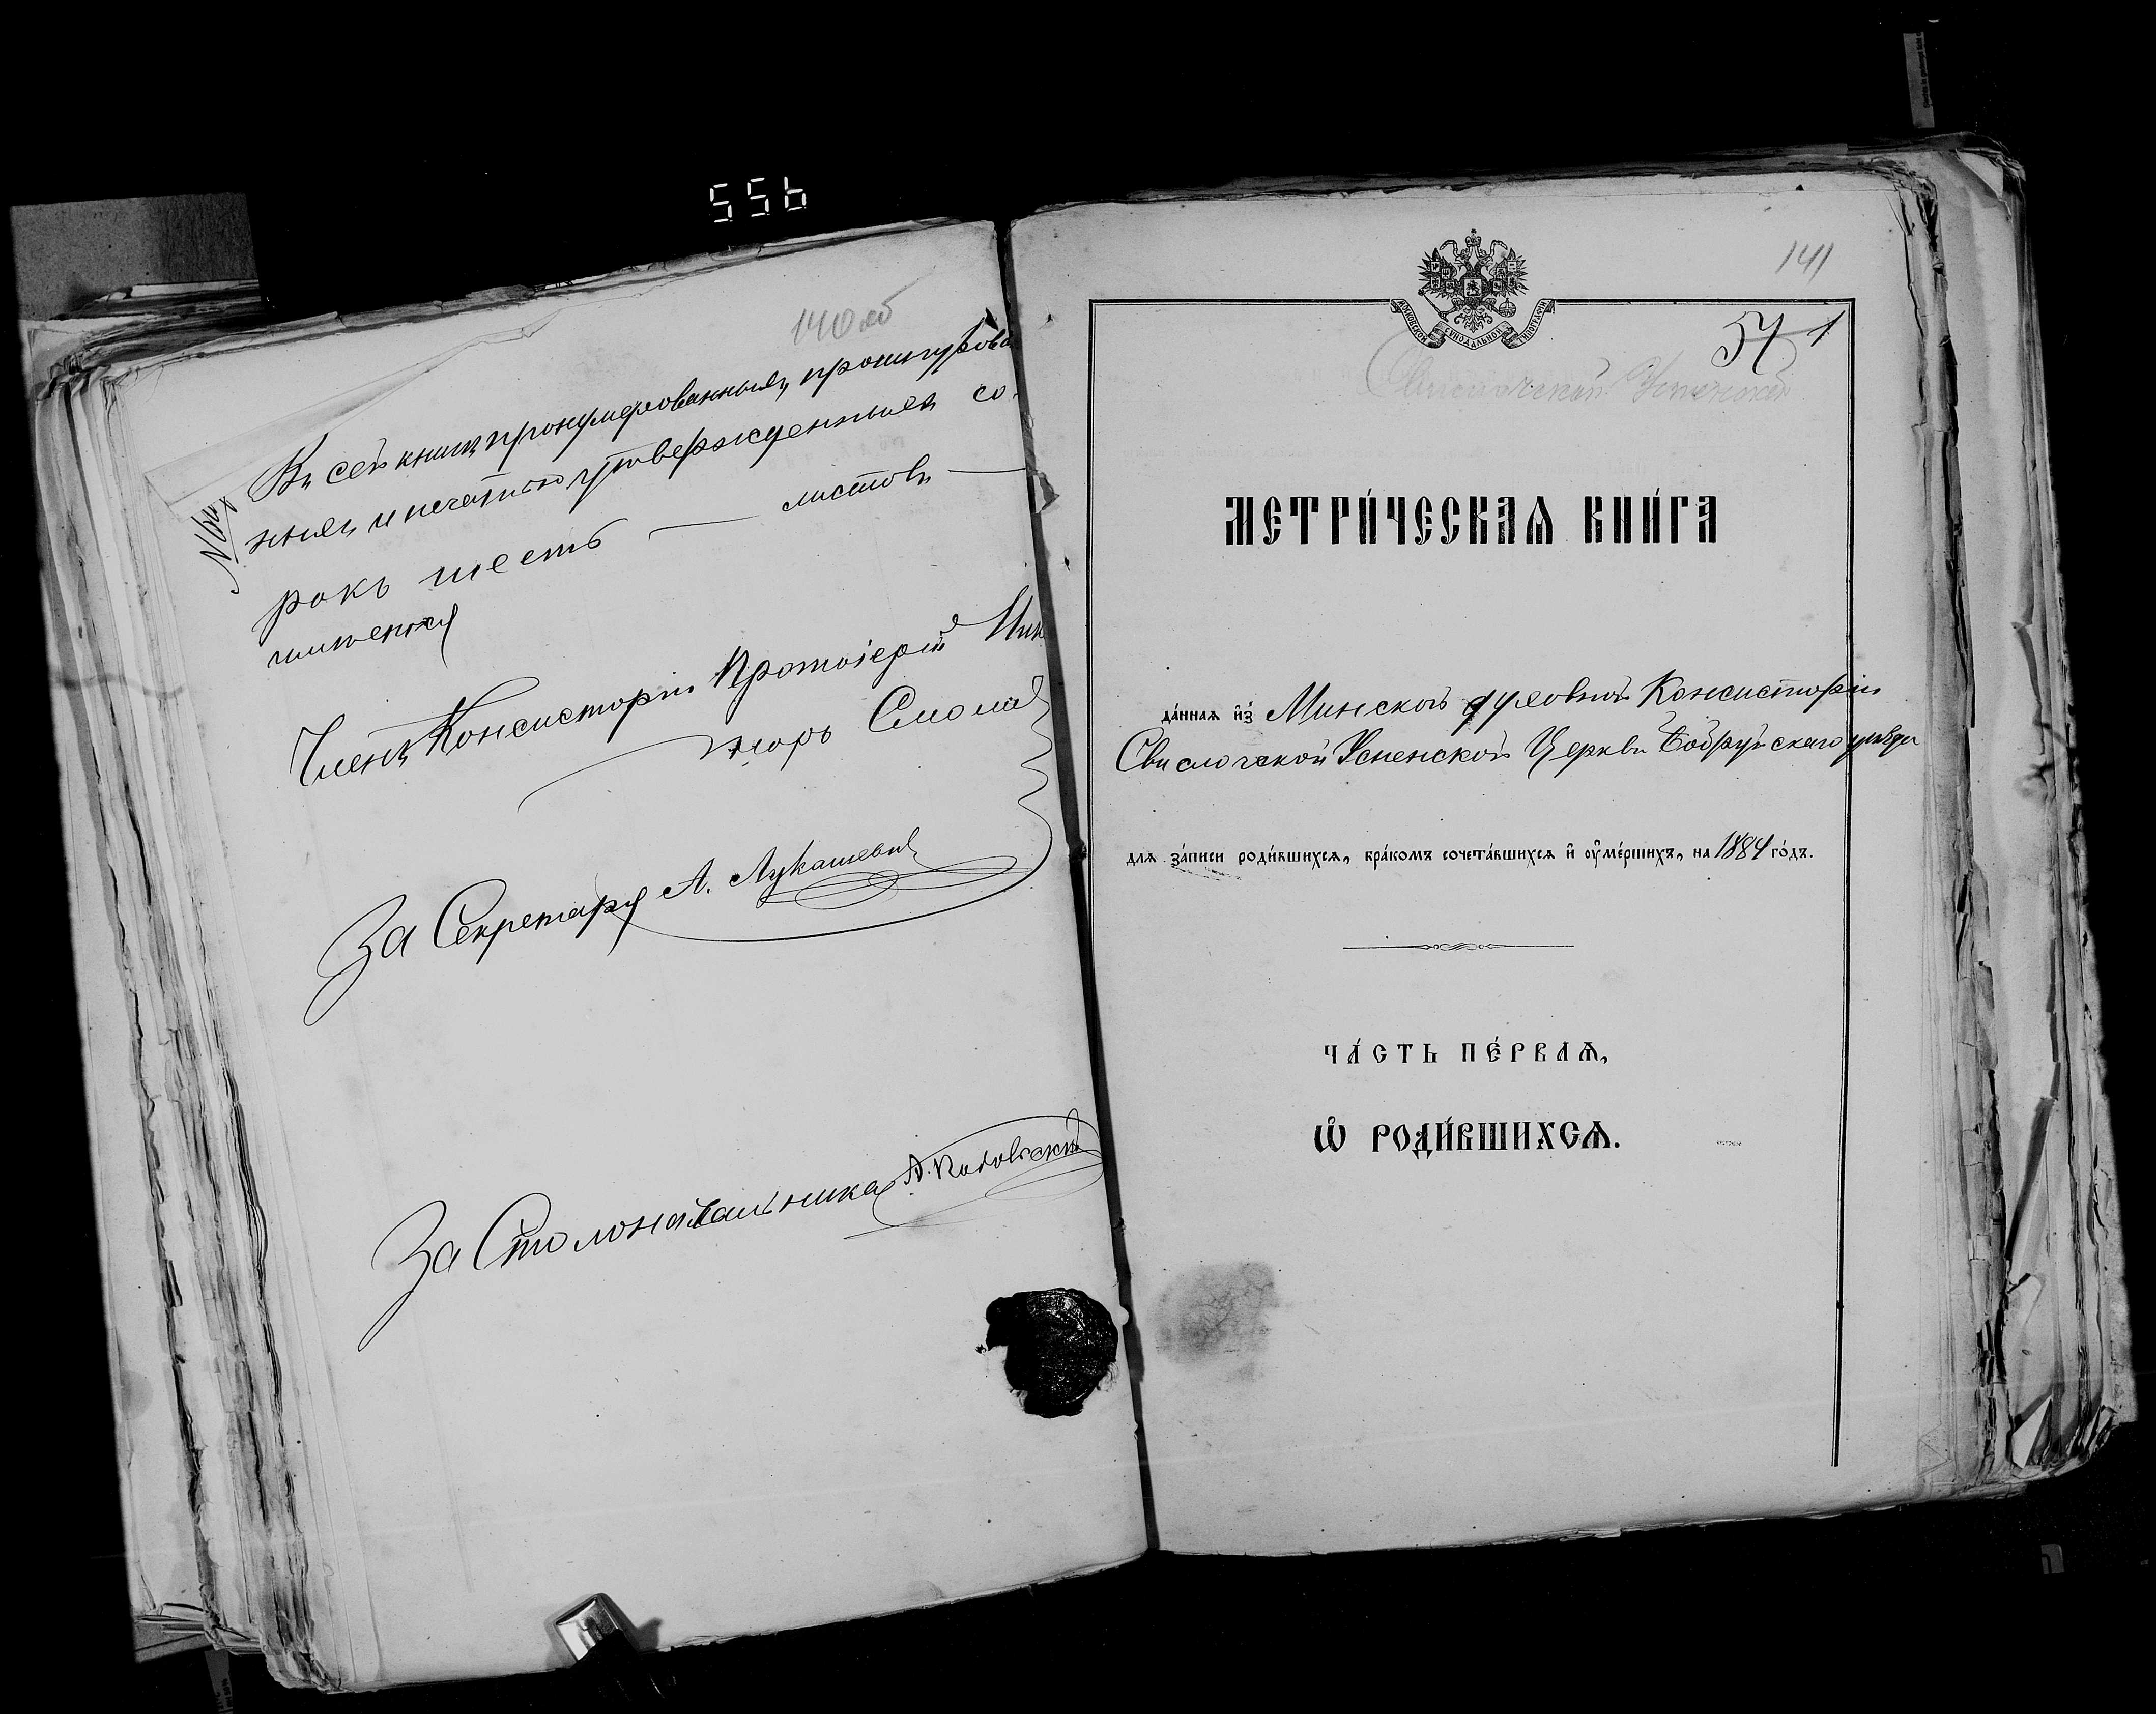 556
140 об
Въ сей книгѣ пронумерованныхъ, прошнурова
ныхъ и печатью утвержденныхъ со-
рокъ шесть листовъ
Членъ Консисторіи Протоіерей
За Секретаря А. Лукашевич
За Столоначальника
141
МОСКОВСКОЙ СѴНОДАЛЬНОЙ ТИПОГРАФІИ
54 1
Свислочской Успенской
МЕТРИ́ЧЕСКАѦ КНИ́ГА
да́ннаѧ и҆з̾ Минской духовной Консисторіи
Свислочской Успенской Церкви Бобруйскаго уѣзда
длѧ за́писи роди́вшихсѧ, бра́комъ сочета́вшихсѧ и҆ ᲂу҆ме́ршихъ, на 1884 го́дъ.
ЧА́СТЬ ПЕ́РВАѦ,
Ѡ҆ РОДИ́ВШИХСѦ.